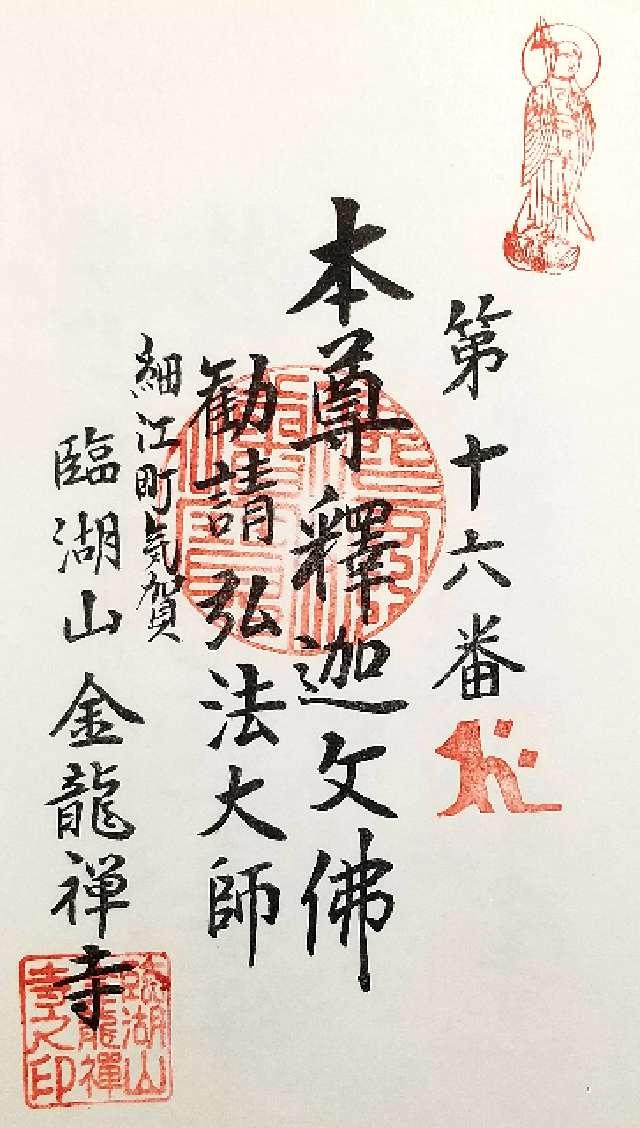 第十六番
本尊釋迦文佛
勧請弘法大師
細江町気賀
臨湖山金龍禅寺
臨湖山
龍禅
印